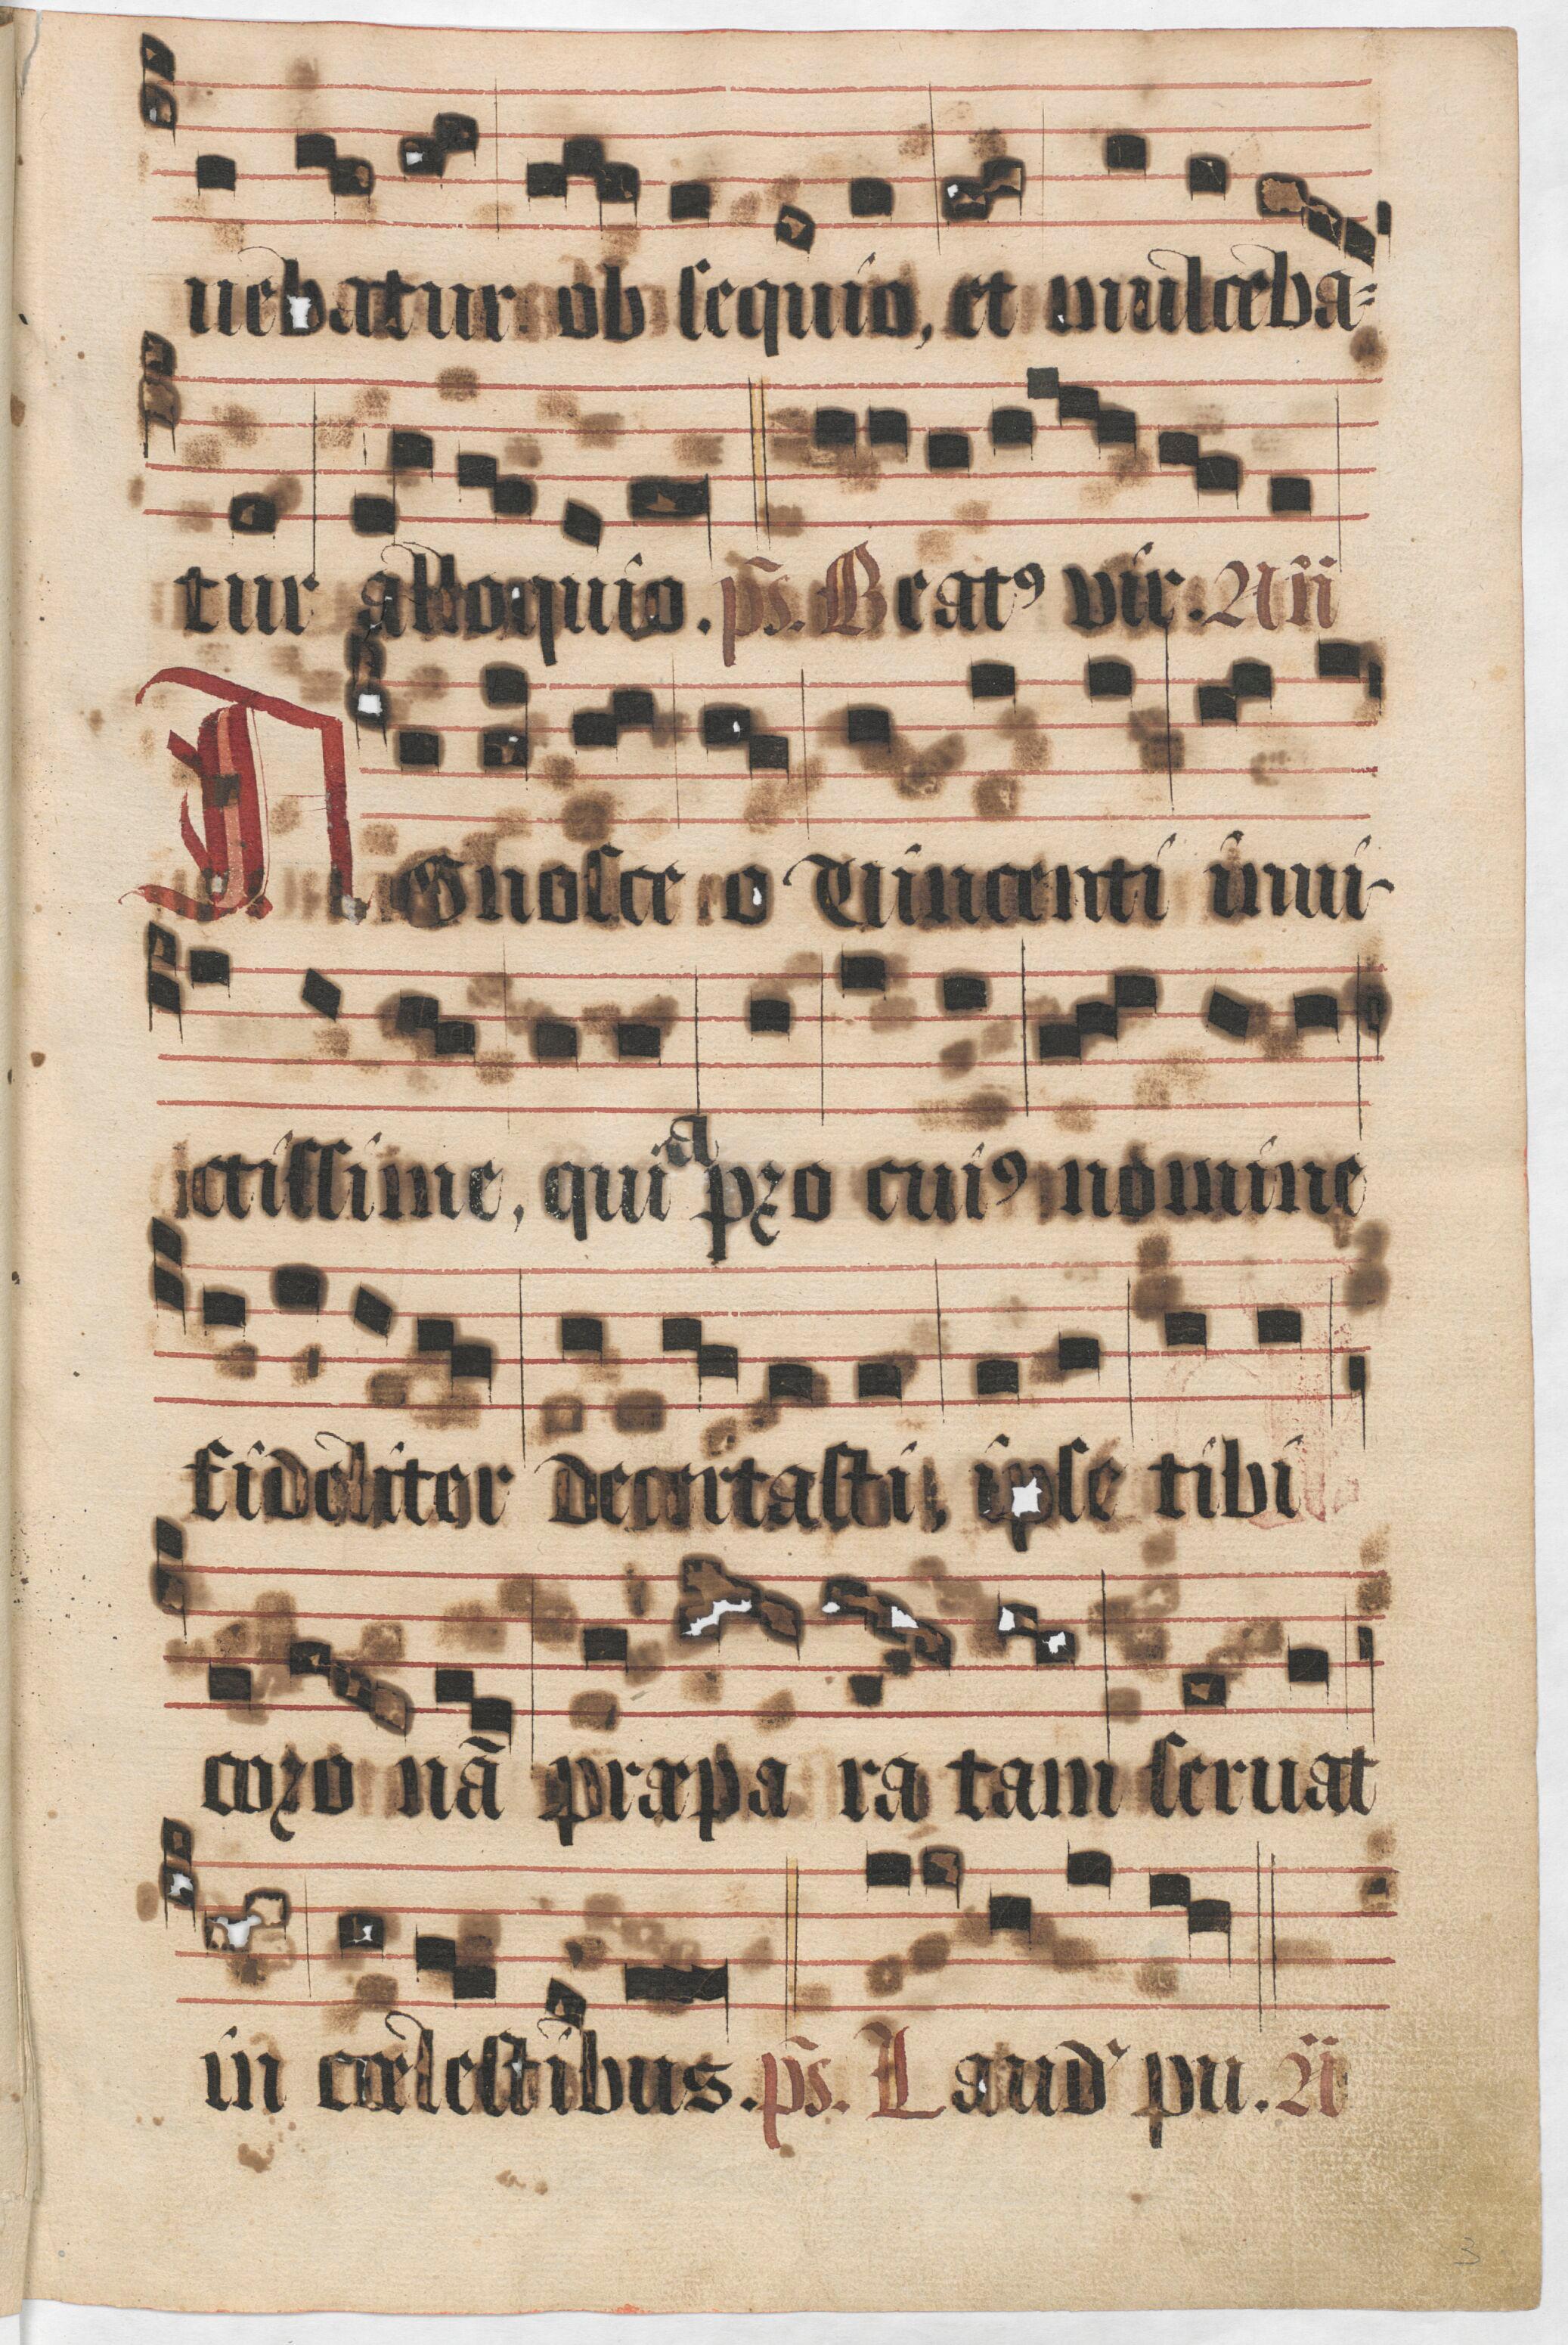 uebatur ob sequio, et mulceba-
tur alloquio. ps. Beatꝰ vir. Añ
AGnosce o Vincenti inui-
ctissime, quia pro cuiꝰ nomine
fideliter decertasti, ipse tibi
coro nā præpa ra tam seruat
in cœlestibus. ps. Laud pu. Añ
3